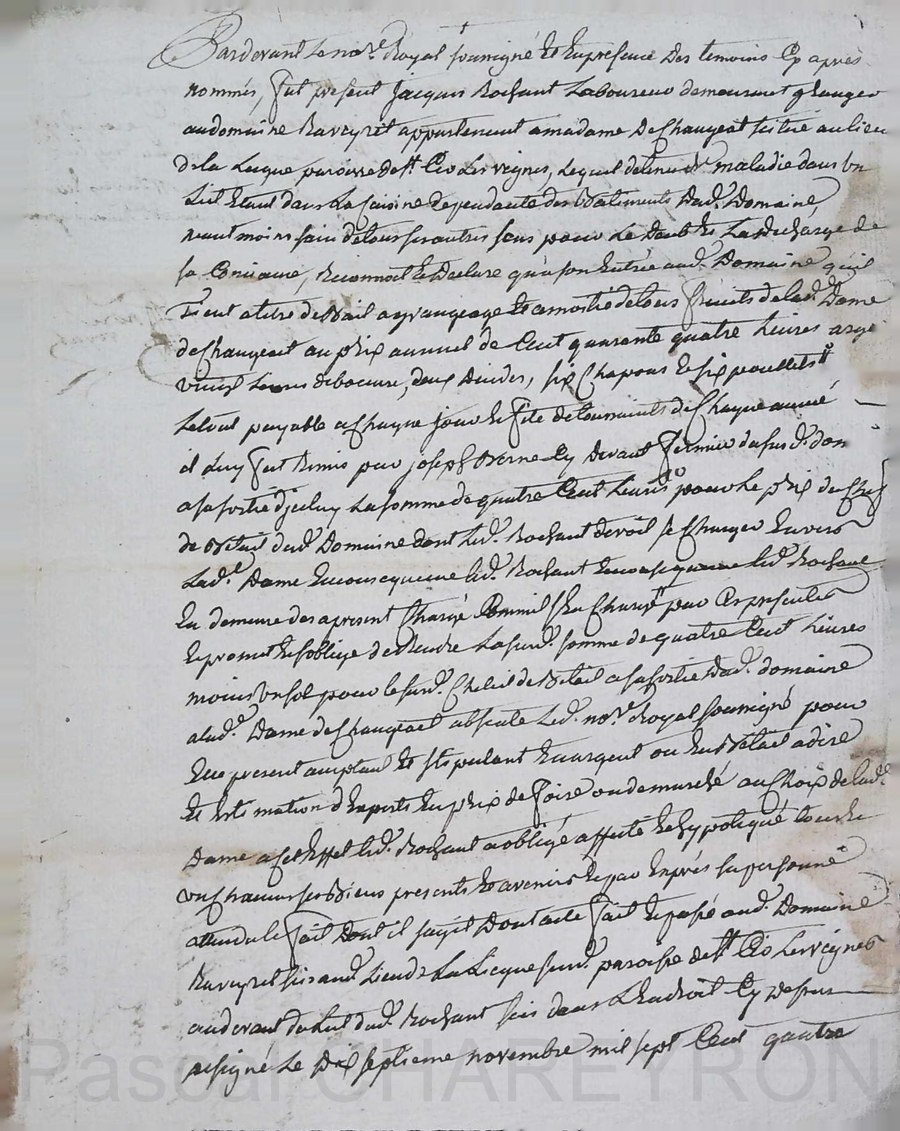 Pardevant Le no.re Royal soussigné Et En presence Des temoins Cy après
nommés, fut present jacques Rochant Laboureur demeurant granger
au domaine Raveyret appartenant a madame De Changeat scitué au lieu
de la Licque paroisse de st. Cio Les veignes, Lequel detenu de maladie dans un
Lit Etant dans La Cuisine dependante des Batiments Dud. Domaine
neant moins sain de tous ses autres sens pour Le Doub Et La Decharge de
sa Consiance, Reconnoit Et Declare qu'a son Entrée aud. Domaine qu'il
Tient a titre de Bail a grangeage Et a moitié de tous fruits de lad. Dame
de Changeat au prix annuel de Cent quarante quatre Livres arge
vingt Livres de beurre, deux Dindes, six Chapons Et six poullets
Le tout payable a Chaque jour Et fête de toussaints de Chaque année
il luy fut Remis par joseph Berne Cy Devant fermier du susd. dom
a sa sortie d'jceluy La somme de quatre Cent Livres pour Le prix du Chef
de Betail dud. Domaine dont Led. Rochant devoit se Charger Envers
Lad. Dame En consequence led. Rochant En consequence led. Rochant
En demeure des apresent Chargé Comme il s'En Charge par Ces presentes
Et promet Et s'oblige de Rendre La susd. somme de quatre Cent Livres
moins un sol pour le susd. Chetel de Betail a sa sortie Dud. domaine
a lad. Dame de Changeat absente Led. no.re Royal soussigné pour
Elle present acceptant Et stipulant En argent ou En Betail a dire
Et Estimation d'Experts En prix de foire ou de marché au Choix de lad.
Dame a Cet Effet led. Rochant a obligé affecté Et hypotequé tous Et
un Chacun ses Biens presents Et avenirs Et par Exprés sa personne
attendu le fait Dont il s'agit Dont acte fait Et passé aud. Domaine
Raveyret sis aud. Lieu de La Licque susd. paroisse de st. Cio Les veignes
au devant du Lit dud. Rochant sis dans L'Endroit Cy Dessus
resigné Le Dix septieme novembre mil sept Cent quatre
Pascal CHAREYRON